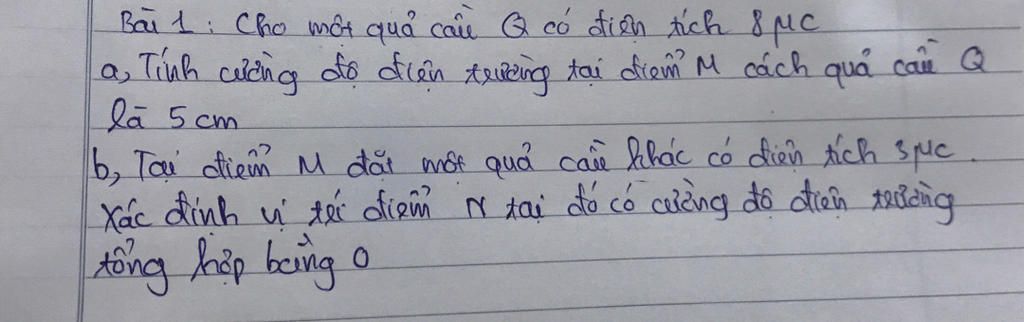 Bài 1: Cho một quả cầu Q có điện tích 8 μC
a, Tính cường độ điện trường tại điểm M cách quả cầu Q
là 5 cm
b, Tại điểm M đặt một quả cầu khác có điện tích 3 μC.
Xác định vị trí điểm N tại đó có cường độ điện trường
tổng hợp bằng 0